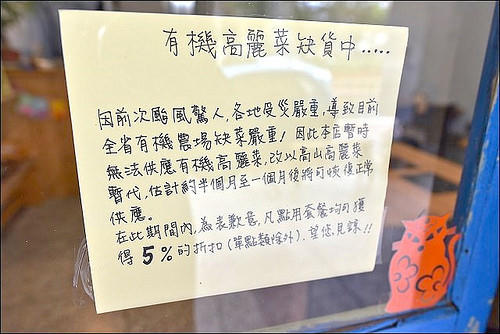 有機高麗菜缺貨中.....
因前次颱風驚人,各地受災嚴重,導致目前
全省有機農場缺菜嚴重!因此本店暫時
無法供應有機高麗菜,改以高山高麗菜
暫代,估計約半個月至一個月後將可恢復正常
供應。
在此期間內,為表歉意,凡點用套餐均可獲
得5%的折扣(單點類除外).望您見諒!!